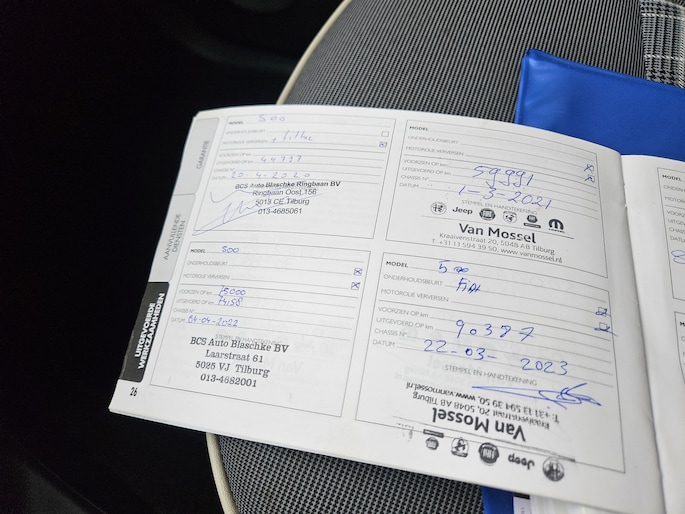 GARANTIE
AANVULLENDE
DIENSTEN
UITGEVOERDE
WERKZAAMHEDEN
26
MODEL 500
ONDERHOUDSBEURT
MOTOROLIE VERVERSEN + filter
VOORZIEN OP km
UITGEVOERD OP km 44797
CHASSIS N°
DATUM 20-4-2020
STEMPEL EN HANDTEKENING
BCS Auto Blaschke Ringbaan BV
Ringbaan Oost 156
5013 CE Tilburg
013-4685061
MODEL 500
ONDERHOUDSBEURT
MOTOROLIE VERVERSEN
VOORZIEN OP km 75000
UITGEVOERD OP km 74158
CHASSIS N°
DATUM 04-04-2022
STEMPEL EN HANDTEKENING
BCS Auto Blaschke BV
Laarstraat 61
5025 VJ Tilburg
013-4682001
MODEL
ONDERHOUDSBEURT
MOTOROLIE VERVERSEN
VOORZIEN OP km
UITGEVOERD OP km 59991
CHASSIS N°
DATUM 1-3-2021
STEMPEL EN HANDTEKENING
Jeep
Van Mossel
Kraaivenstraat 20, 5048 AB Tilburg
T +31 13 594 39 50, www.vanmossel.nl
MODEL 500
ONDERHOUDSBEURT Fiat
MOTOROLIE VERVERSEN
VOORZIEN OP km
UITGEVOERD OP km 90387
CHASSIS N°
DATUM 22-03-2023
STEMPEL EN HANDTEKENING
Jeep
Van Mossel
Kraaivenstraat 20, 5048 AB Tilburg
T +31 13 594 39 50, www.vanmossel.nl